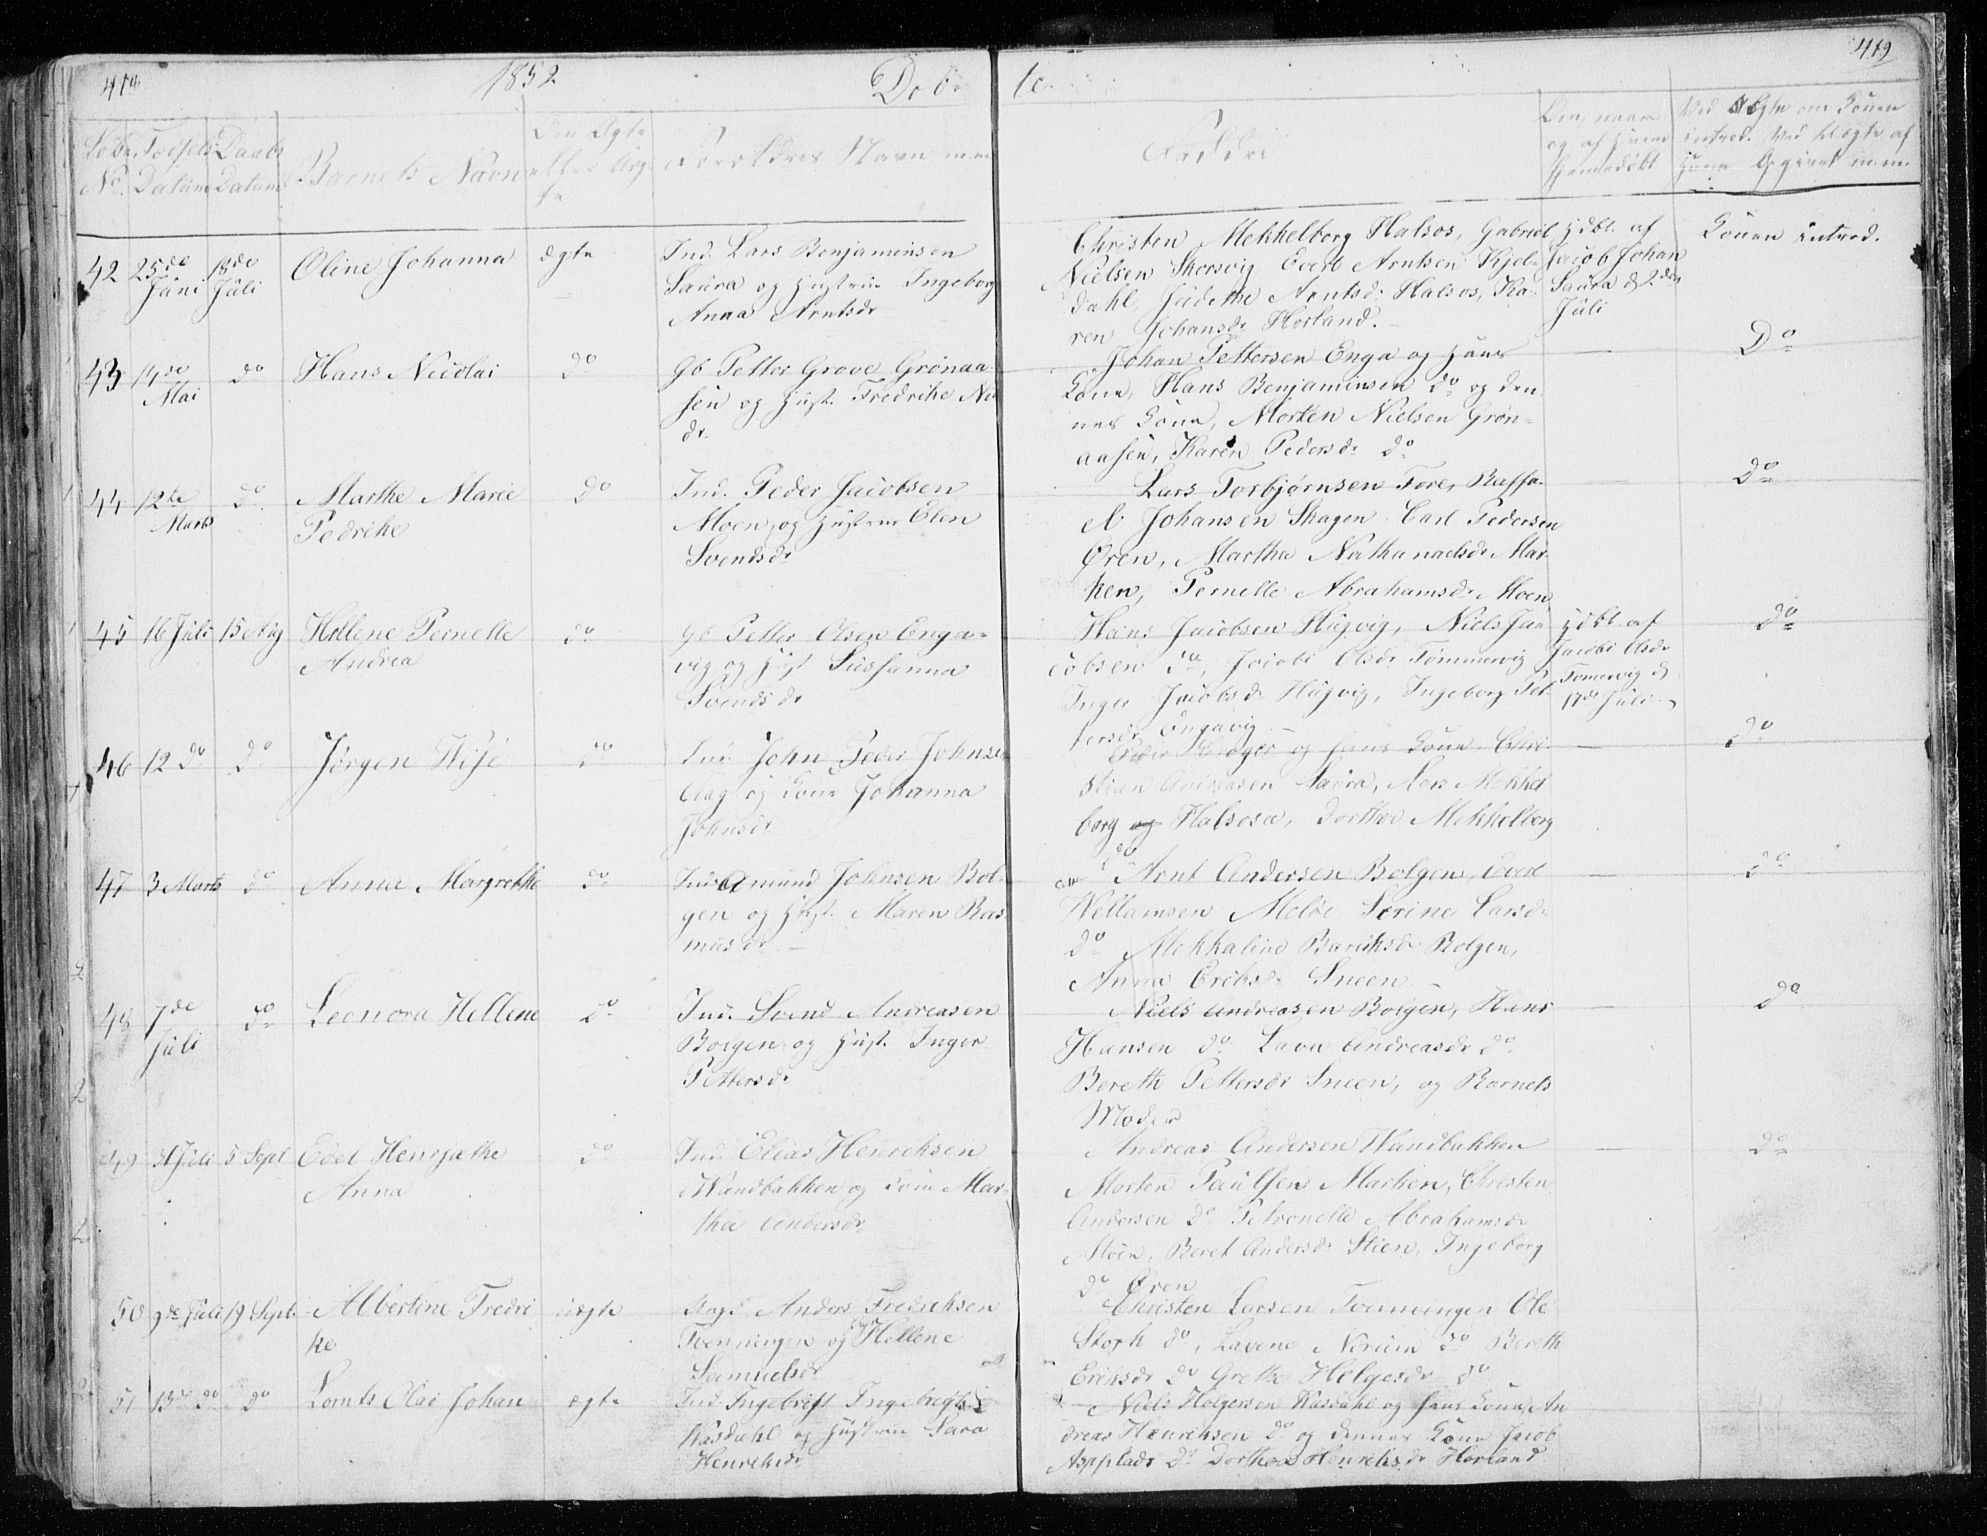 418
1852
Döbte.
419
Löbe No.
Födsels Datum
Daabs Datum
Barnets Navn
Om Ægte eller Uægte
Forældres Navn
Faddre
Om, naar og af hvem hjemmedöbt
Ved Ægte om Konen introd. Ved Uægte af hvem
42
25de Juni
18de Juli
Oline Johanna
ægte
Ind. Lars Benjaminsen
Saura og Hustrue Ingeborg
Anna Arntsdr
Christen Mekkelborg Halsos, Gabriel
Nielsen Skorsvig Evert Arntsen Kjel-
dahl, Judethe Arntsdr Halsos, Ka-
ren Johansdr Horland.
hjdbt. af
Jacob Johan
Saura d 2den
Juli
Konen introd.
43
Mai
do
Hans Nicolai
do
Gb Petter Grove Grönaa-
sen og Hust. Fredrike
Johan Pettersen Enga og Hans
Kone, Hans Benjaminsen do og den-
nes Kone, Morten Nielsen Grön-
aasen, Karen Pedersdr do
Do
44
12te Marts
do
Marthe Marie
Pedrike
do
Ind. Peder Jacobsen
Moen, og Hustrue Elen
Svendsdr
Lars Torbjørnsen Fore, Raffa-
el Johansen Skagen. Carl Pedersen
Øren, Martha Nathanaelsdr Mar-
ken, Pernelle Abrahamsdr Moen
Do
45
16 Juli
15 Aug
Hellene Pernelle
Andrea
do
Gb Petter Olsen Enga-
vig og Hust Sussanna
Svendsdr
Hans Jacobsen Hugvig, Niels Ja-
cobsen do, Jacobi Olsdr Tömmervig
Inger Jacobsdr Hugvig, Ingeborg Pet-
tersdr Engavig
hjdbt af
Jacobi Olsdr
Tömervig d
17de Juli
do
46
12 do
do
Jörgen
do
Ind. John Peder Johnsen
Aag og Kone Johanna
Johnsdr
og hans Kone, Chri-
stian Andreasen Saura, Mekkel-
borg og Halsosa, Dorthea Mekkelborg
do
do
47
3 Marts
do
Anna Margrethe
do
Ind. Amund Johnsen Bol-
gen og Hust. Maren Ras-
musdr
Arnt Andersen Bolgen, Evert
Wellamsen Melöe Serine Larsdr
do Mekkaline Baruksdr Bolgen,
Anna Eriksdr Sneen
do
48
7de Juli
do
Leonora Hellene
do
Ind. Svend Andreasen
Bolgen og Hust. Inger
Pettersdr
Niels Andreasen Bolgen, Hans
Hansen do Lava Andreasdr do
Bereth Pettersdr Sneen, og Barnets
Moder
do
49
Juli
5 Sept
Edel Henrjathe
Anna
do
Ind. Elias Henriksen
Wandbakken og Kone Mar-
tha Andersdr
Andreas Andersen Wandbakken
Morten Paulsen Marken, Christen
Andersen do Petronelle Abrahamsdr
Moen, Beret Andersdr Stien, Ingeborg
do Øren
do
50
9de Juli
19 Septb
Albertine Fredri
ke
uægte
Anders Fredriksen
Tvenningen og Hellene
Samuelsdr
Christen Larsen Tvenningen Ole
Storh do, Lavene Norum do Bereth
Eriksdr do Grethe Helgesdr do
51
13de do
do
Lornts Olai Johan
ægte
Ind. Ingebrigt Ingebrigts
Kasdahl og Hustrue Sara
Henriksdr
Niels Holgersen Kasdahl og hans Kone, An
dreas Henriksen do og dennes Kone Jacob
do Dorthea Henriksdr Horland